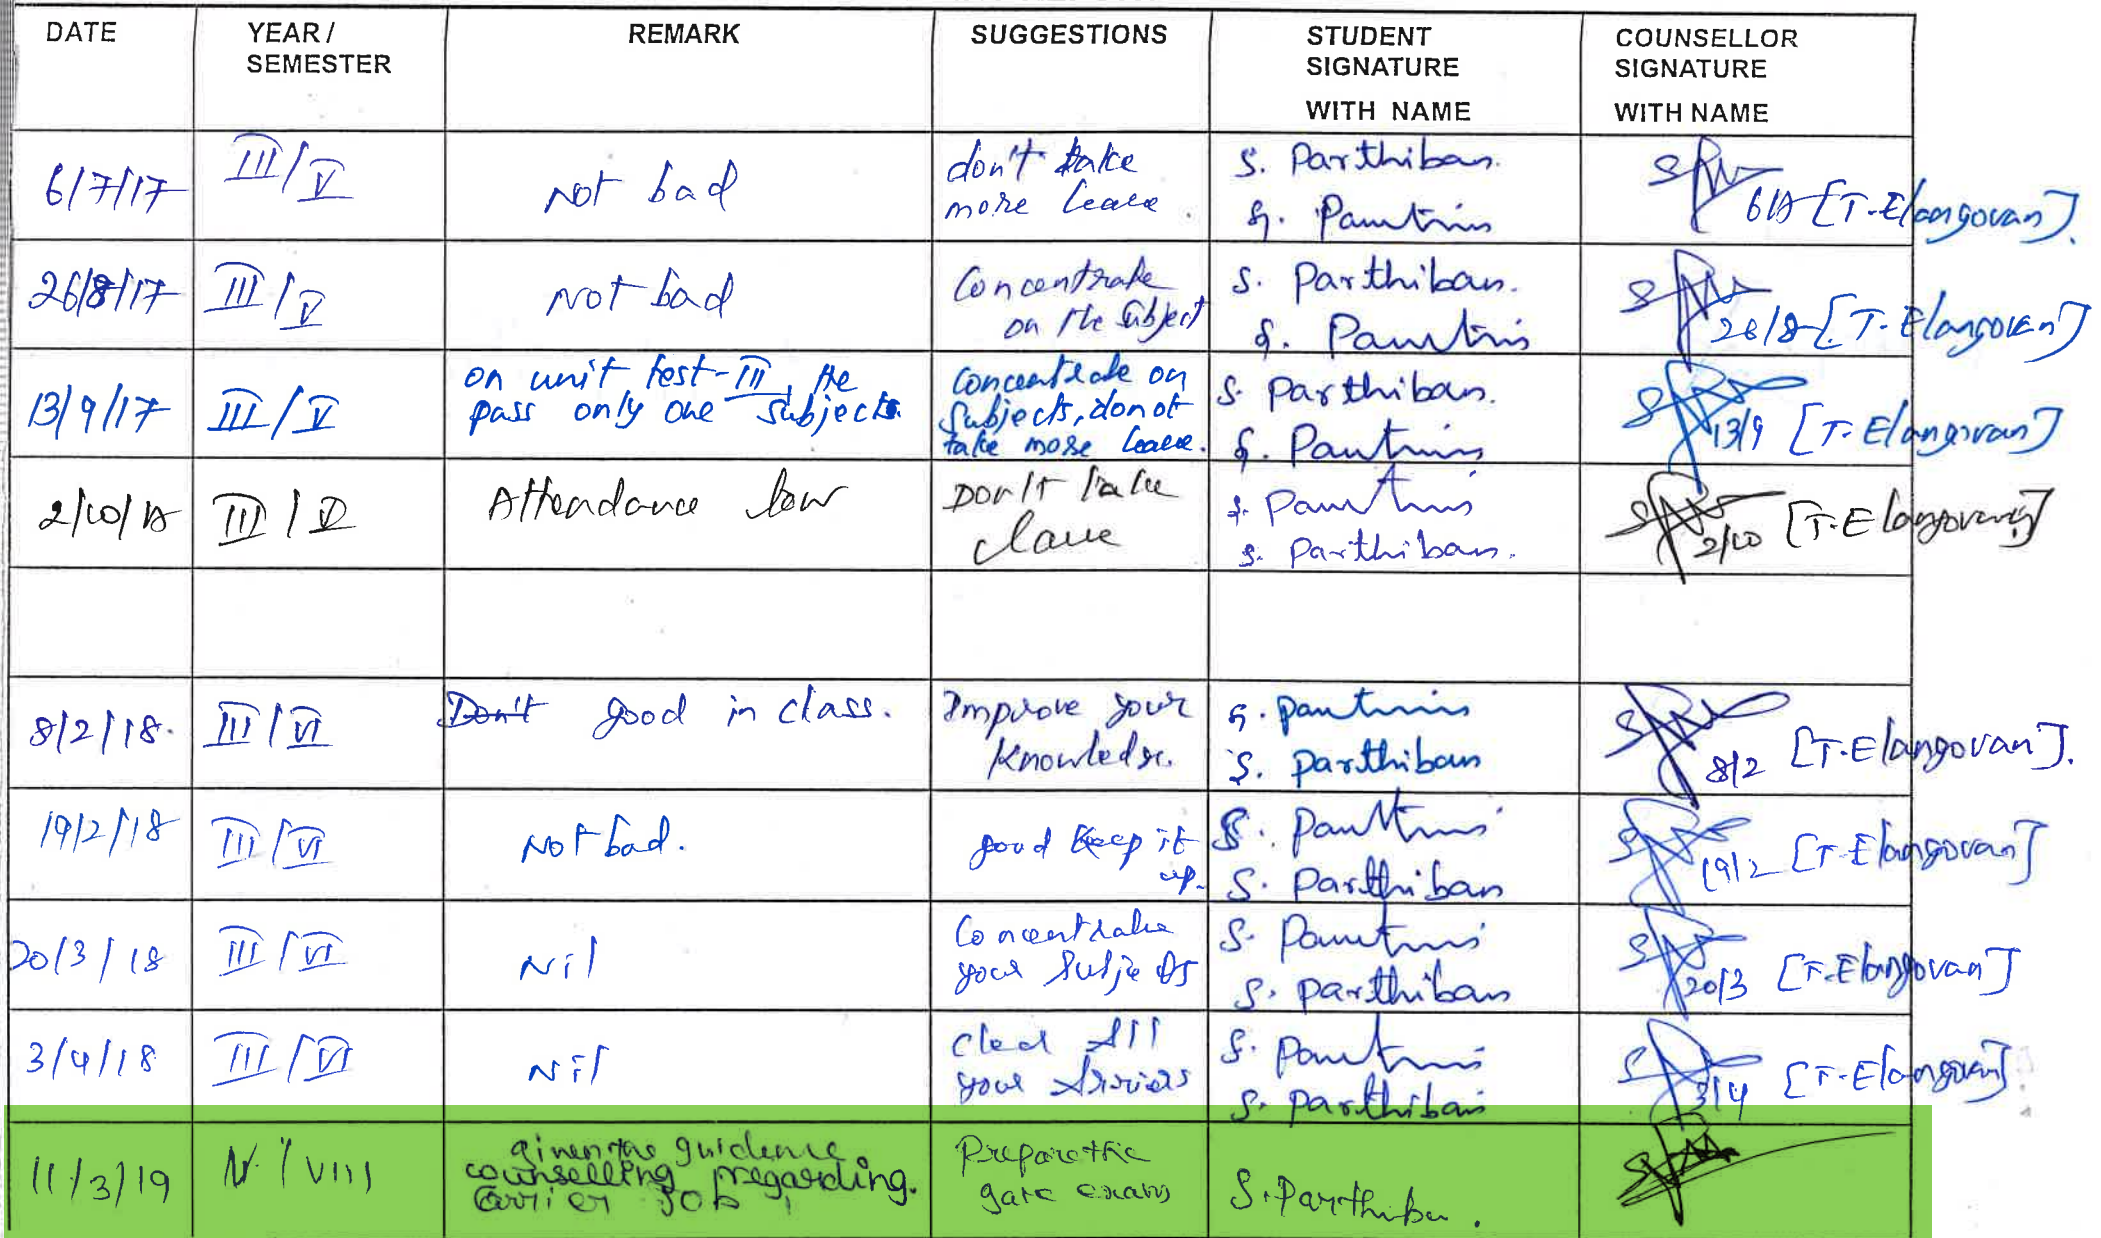 DATE
YEAR /
SEMESTER
REMARK
SUGGESTIONS
STUDENT
SIGNATURE
WITH NAME
COUNSELLOR
SIGNATURE
WITH NAME
6/7/17
III/V
Not bad
don't take
more leave.
S. Parthiban.
6/7 [T-Elangovan].
26/8/17
III/V
Not bad
Concentrate
on the subject
S. Parthiban.
26/8 [T-Elangovan]
13/9/17
III/V
on unit test-III, He
pass only one subjects.
Concentrate on
subjects, donot
take more leave.
S. Parthiban.
13/9 [T-Elangovan]
2/10/17
III/V
Attendance low
Don't take
S. Parthiban.
2/10 [T-Elangovan]
8/2/18.
III/VI
Don't good in class.
Improve your
Knowledge.
S. Parthiban
8/2 [T-Elangovan].
19/2/18
III/VI
Not bad.
good keep it
up.
S. Parthiban
19/2 [T-Elangovan]
20/3/18
III/VI
Nil
Concentrate
your Subjects
S. Parthiban
20/3 [T-Elangovan]
3/4/18
III/VI
Nil
Clear All
your Arriers
S. Parthiban
3/4 [T-Elangovan]
11/3/19
IV/VIII
given the guidence
counselling regarding.
Carrier JOB
Prepare the
gate exams
S. Parthiban.